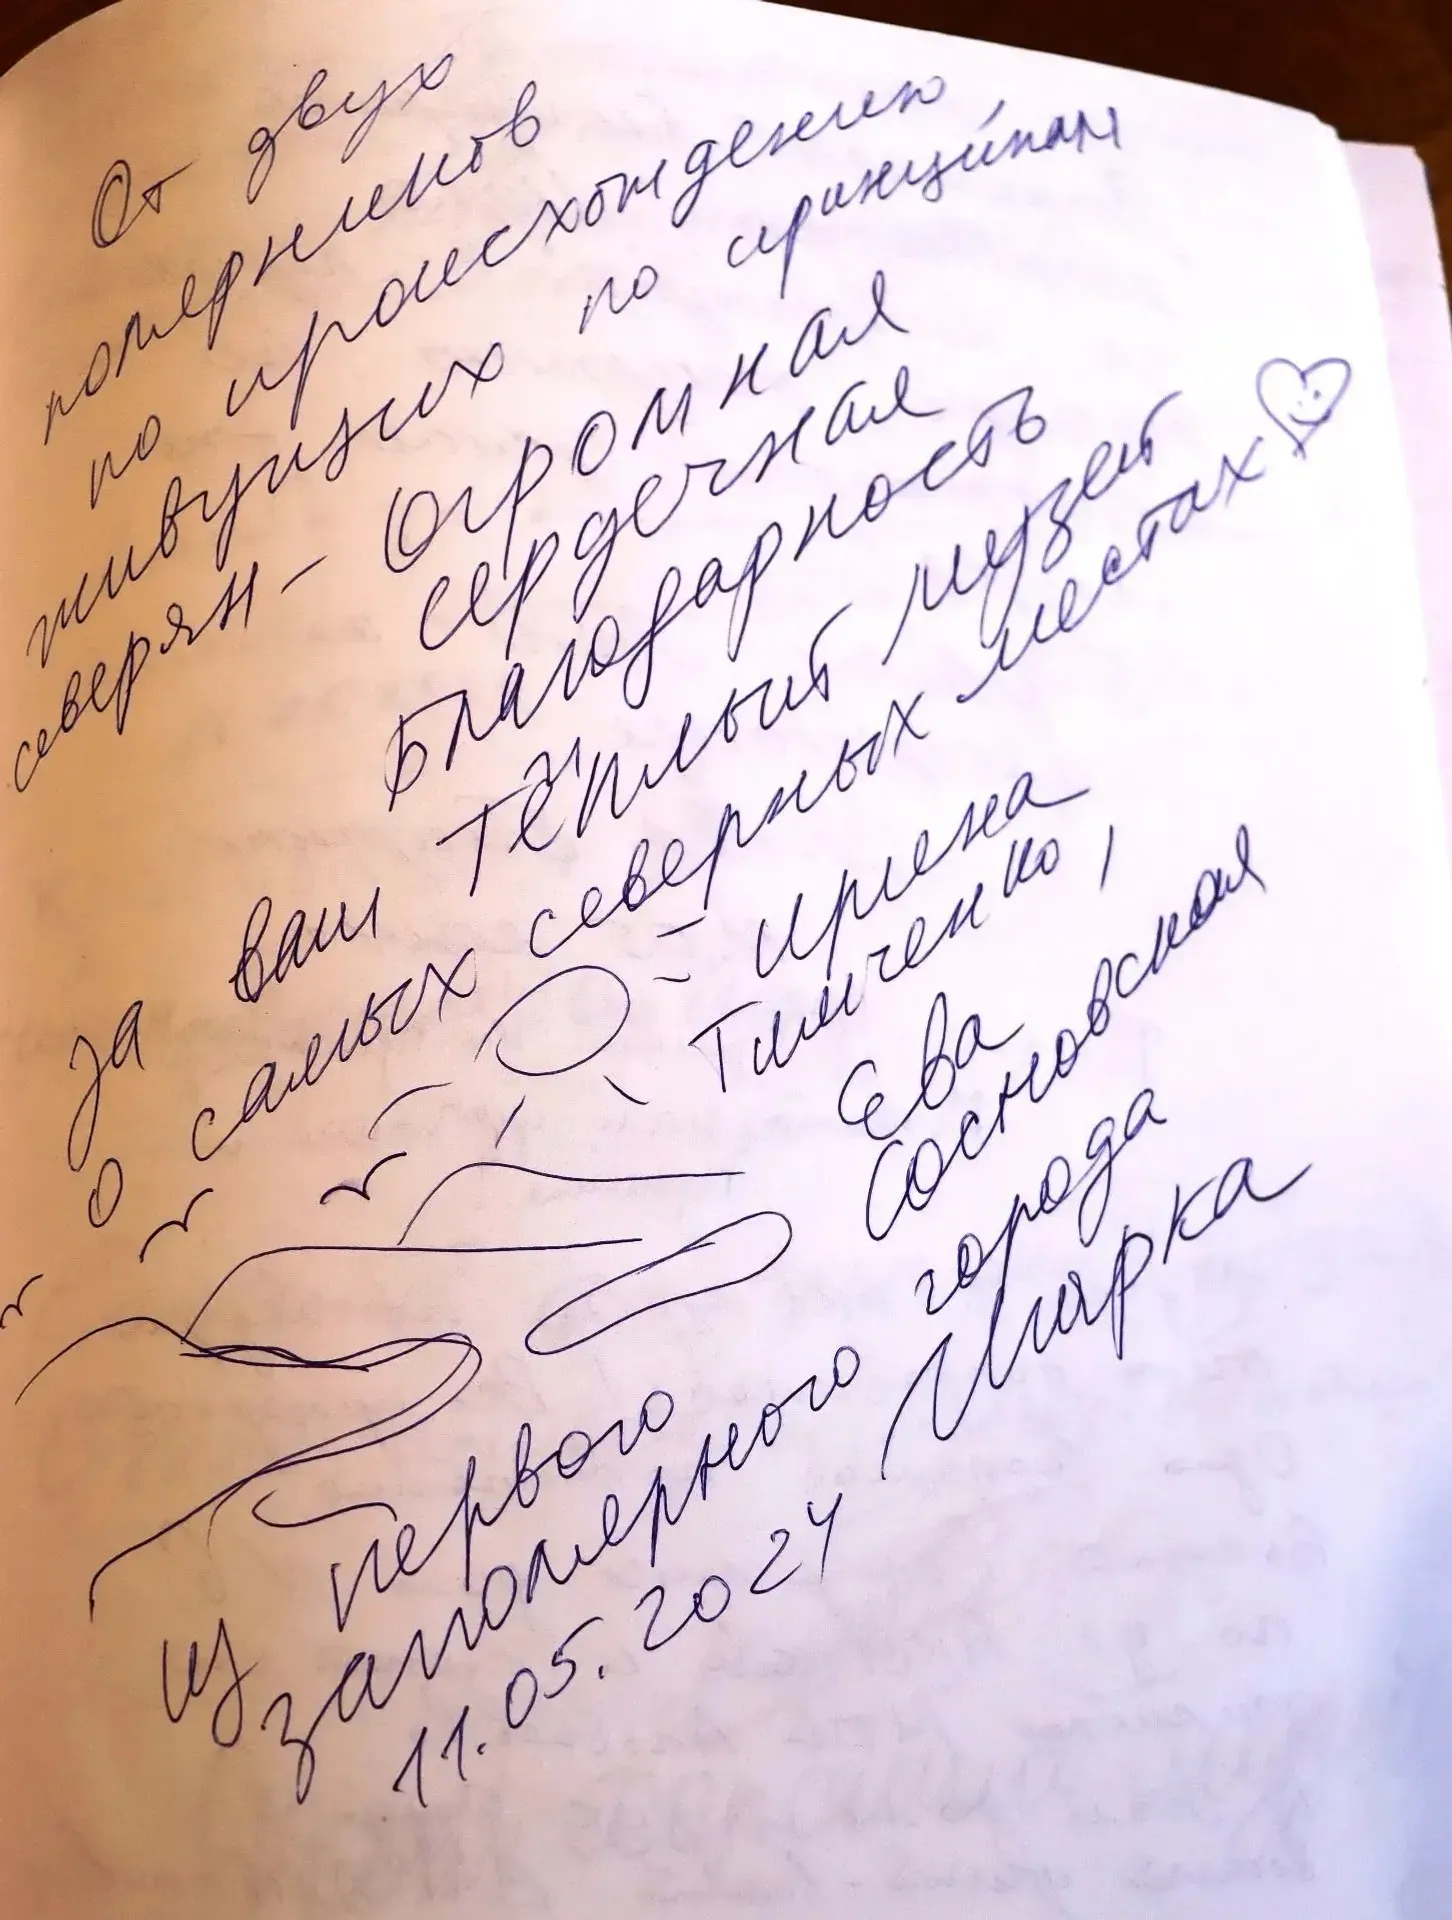 От двух
полярников
по происхождению
живущих по принципам
северян – Огромная
сердечная
Благодарность
За ваш Тёплый музей
о самых северных местах
Ирена
Тимченко,
Ева
Сосновская
из первого
заполярного города
Игарка
11.05.2024